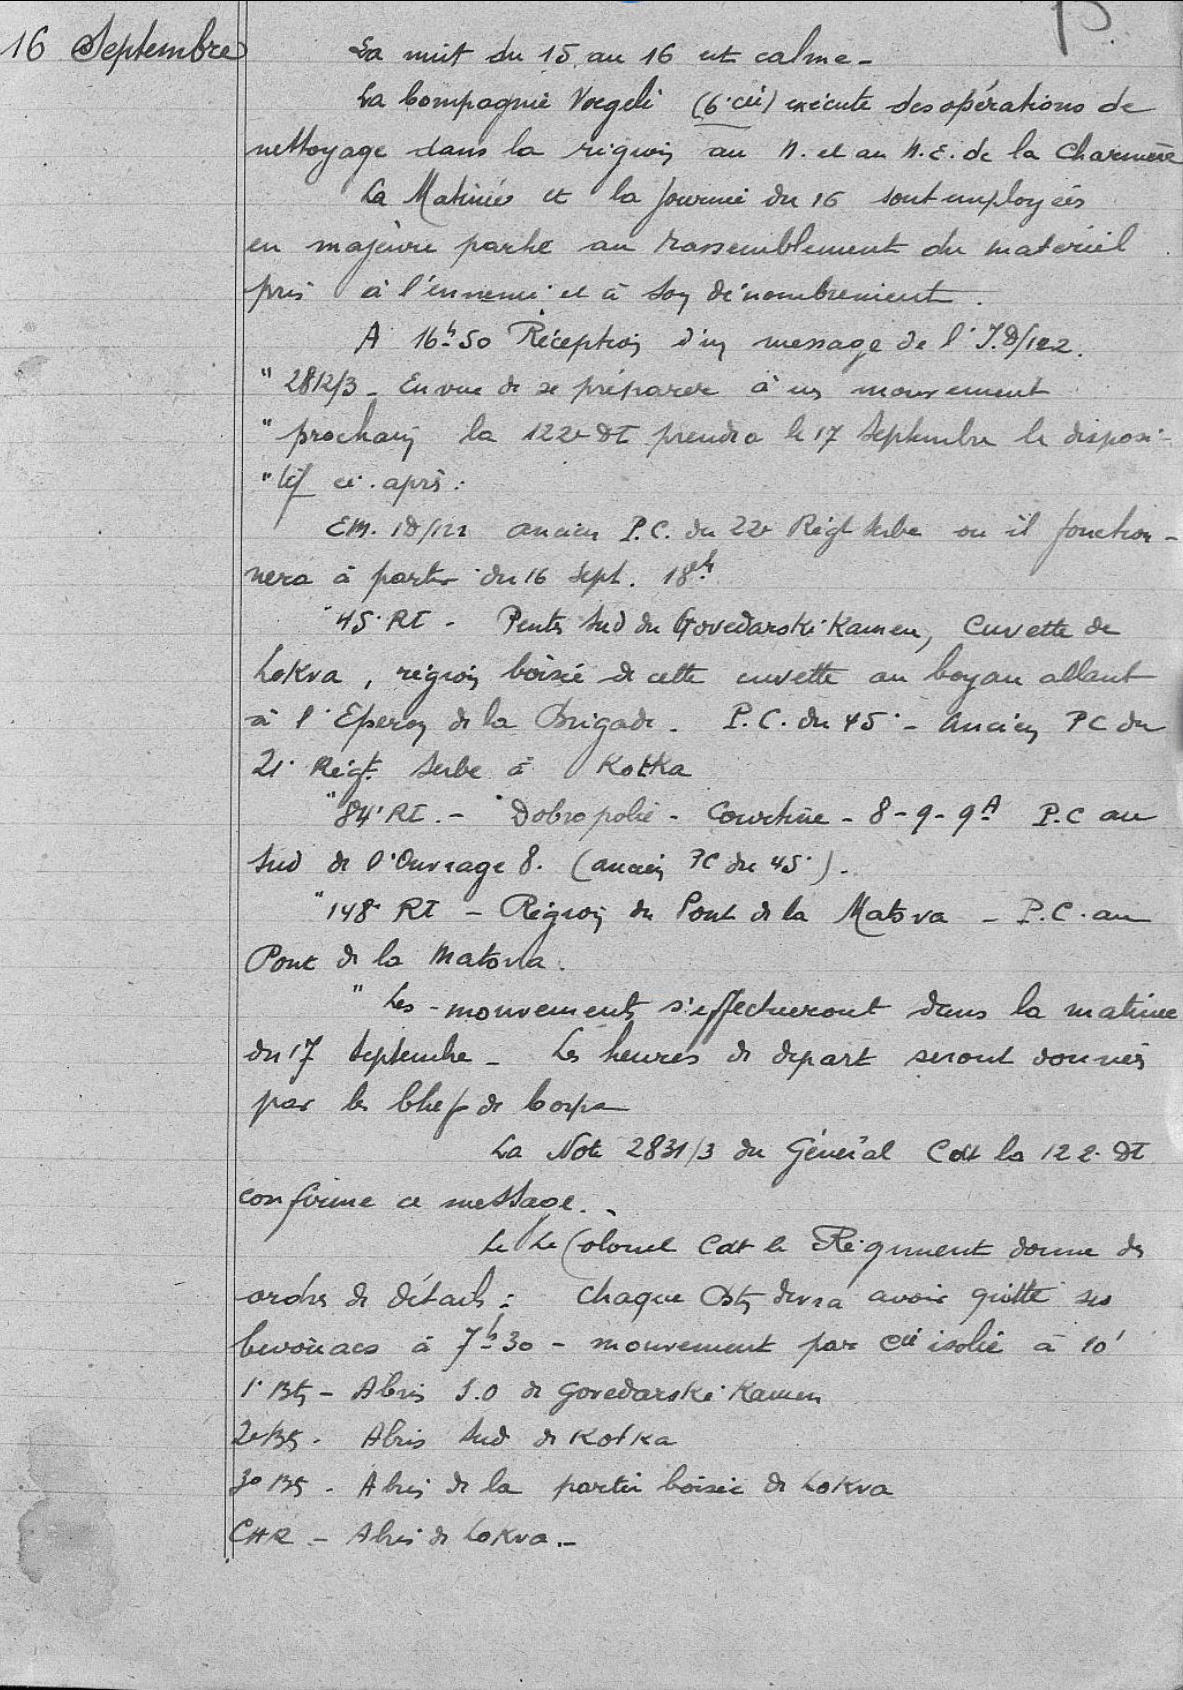 16 Septembre
La nuit du 15 au 16 est calme -
La Compagnie Voegeli (6e Cie) exécute des opérations de
nettoyage dans la région au N. et au N.E. de la Charmère
La Matinée et la journée du 16 sont employées
en majeure partie au rassemblement du matériel
pris à l'ennemi et à son dénombrement.
A 16h50 Réception d'un message de l'I.D/122.
" 2812/3 - En vue de se préparer à un mouvement
" prochain la 122e DI prendra le 17 Septembre le disposi-
" tif ci-après :
EM. ID/122 ancien P.C. du 22e Régt Serbe où il fonction-
nera à partir du 16 Sept. 18h
" 45e RI - Pentes Sud du Govedarski Kamen, Cuvette de
Lokva, région boisée de cette cuvette au boyau allant
à l'Eperon de la Brigade. P.C. du 45e - ancien PC du
21e Régt. Serbe à Kotka
" 84e RI. - Dobropolié - Courtine - 8 - 9 - 9A P.C au
Sud de l'Ouvrage 8. (ancien PC du 45e).
" 148e RI - Région du Pont de la Matova - P.C. au
Pont de la Matova.
" Les mouvements s'effectueront dans la matinée
du 17 Septembre - Les heures de départ seront données
par les Chefs de Corps
La Note 2831/3 du Général Cdt la 122e DI
confirme ce message. -
Le Lt Colonel Cdt le Régiment donne des
ordres de détails : Chaque Btn devra avoir quitté ses
bivouacs à 7h30 - mouvement par Cie isolée à 10'
1e Btn - Abris S.O de Govedarski Kamen
2e Btn - Abris Sud de Kotka
3e Btn - Abris de la partie boisée de Lokva
CHR - Abris de Lokva. -